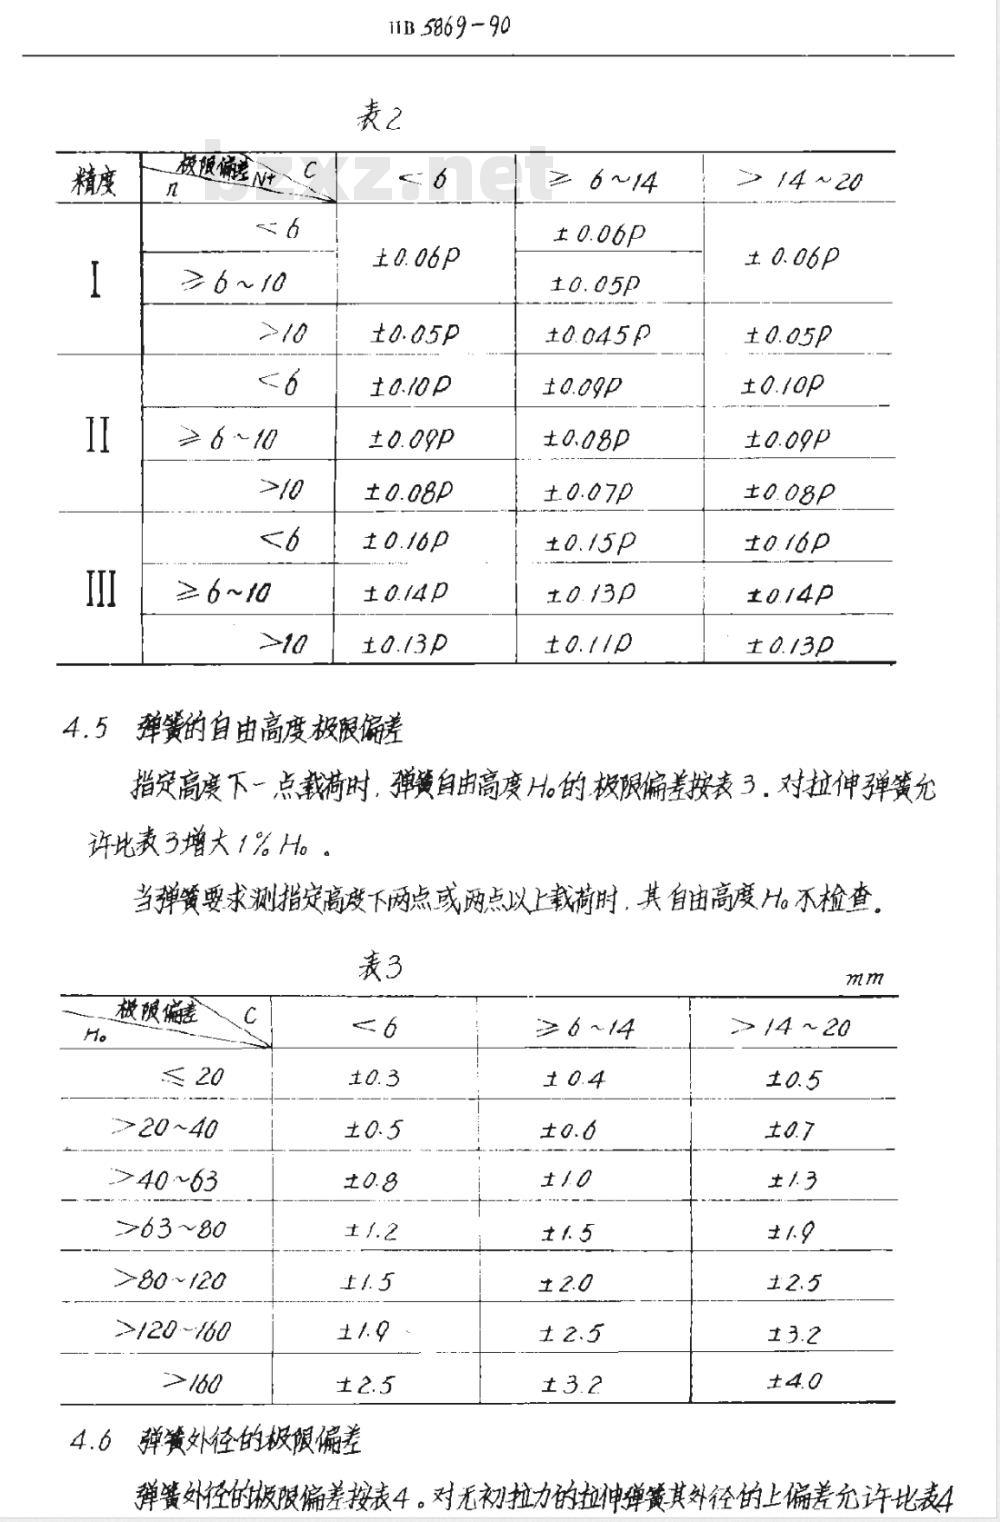 HB 5869-90
bzxz.net
表2
精度 极限偏差 N+ C n <6 ≥6~14 >14~20
I <6 ±0.06P ±0.06P ±0.06P
≥6~10 ±0.05P
>10 ±0.05P ±0.045P ±0.05P
II <6 ±0.10P ±0.09P ±0.10P
≥6~10 ±0.09P ±0.08P ±0.09P
>10 ±0.08P ±0.07P ±0.08P
III <6 ±0.16P ±0.15P ±0.16P
≥6~10 ±0.14P ±0.13P ±0.14P
>10 ±0.13P ±0.11P ±0.13P
4.5 弹簧的自由高度极限偏差
指定高度下一点载荷时,弹簧自由高度H₀的极限偏差按表3。对拉伸弹簧允
许比表3增大1%H₀。
当弹簧要求测指定高度下两点或两点以上载荷时,其自由高度H₀不检查。
表3
mm
极限偏差 C H₀ <6 ≥6~14 >14~20
≤20 ±0.3 ±0.4 ±0.5
>20~40 ±0.5 ±0.6 ±0.7
>40~63 ±0.8 ±1.0 ±1.3
>63~80 ±1.2 ±1.5 ±1.9
>80~120 ±1.5 ±2.0 ±2.5
>120~160 ±1.9 ±2.5 ±3.2
>160 ±2.5 ±3.2 ±4.0
4.6 弹簧外径的极限偏差
弹簧外径的极限偏差按表4。对无初拉力的拉伸弹簧其外径的上偏差允许比表4